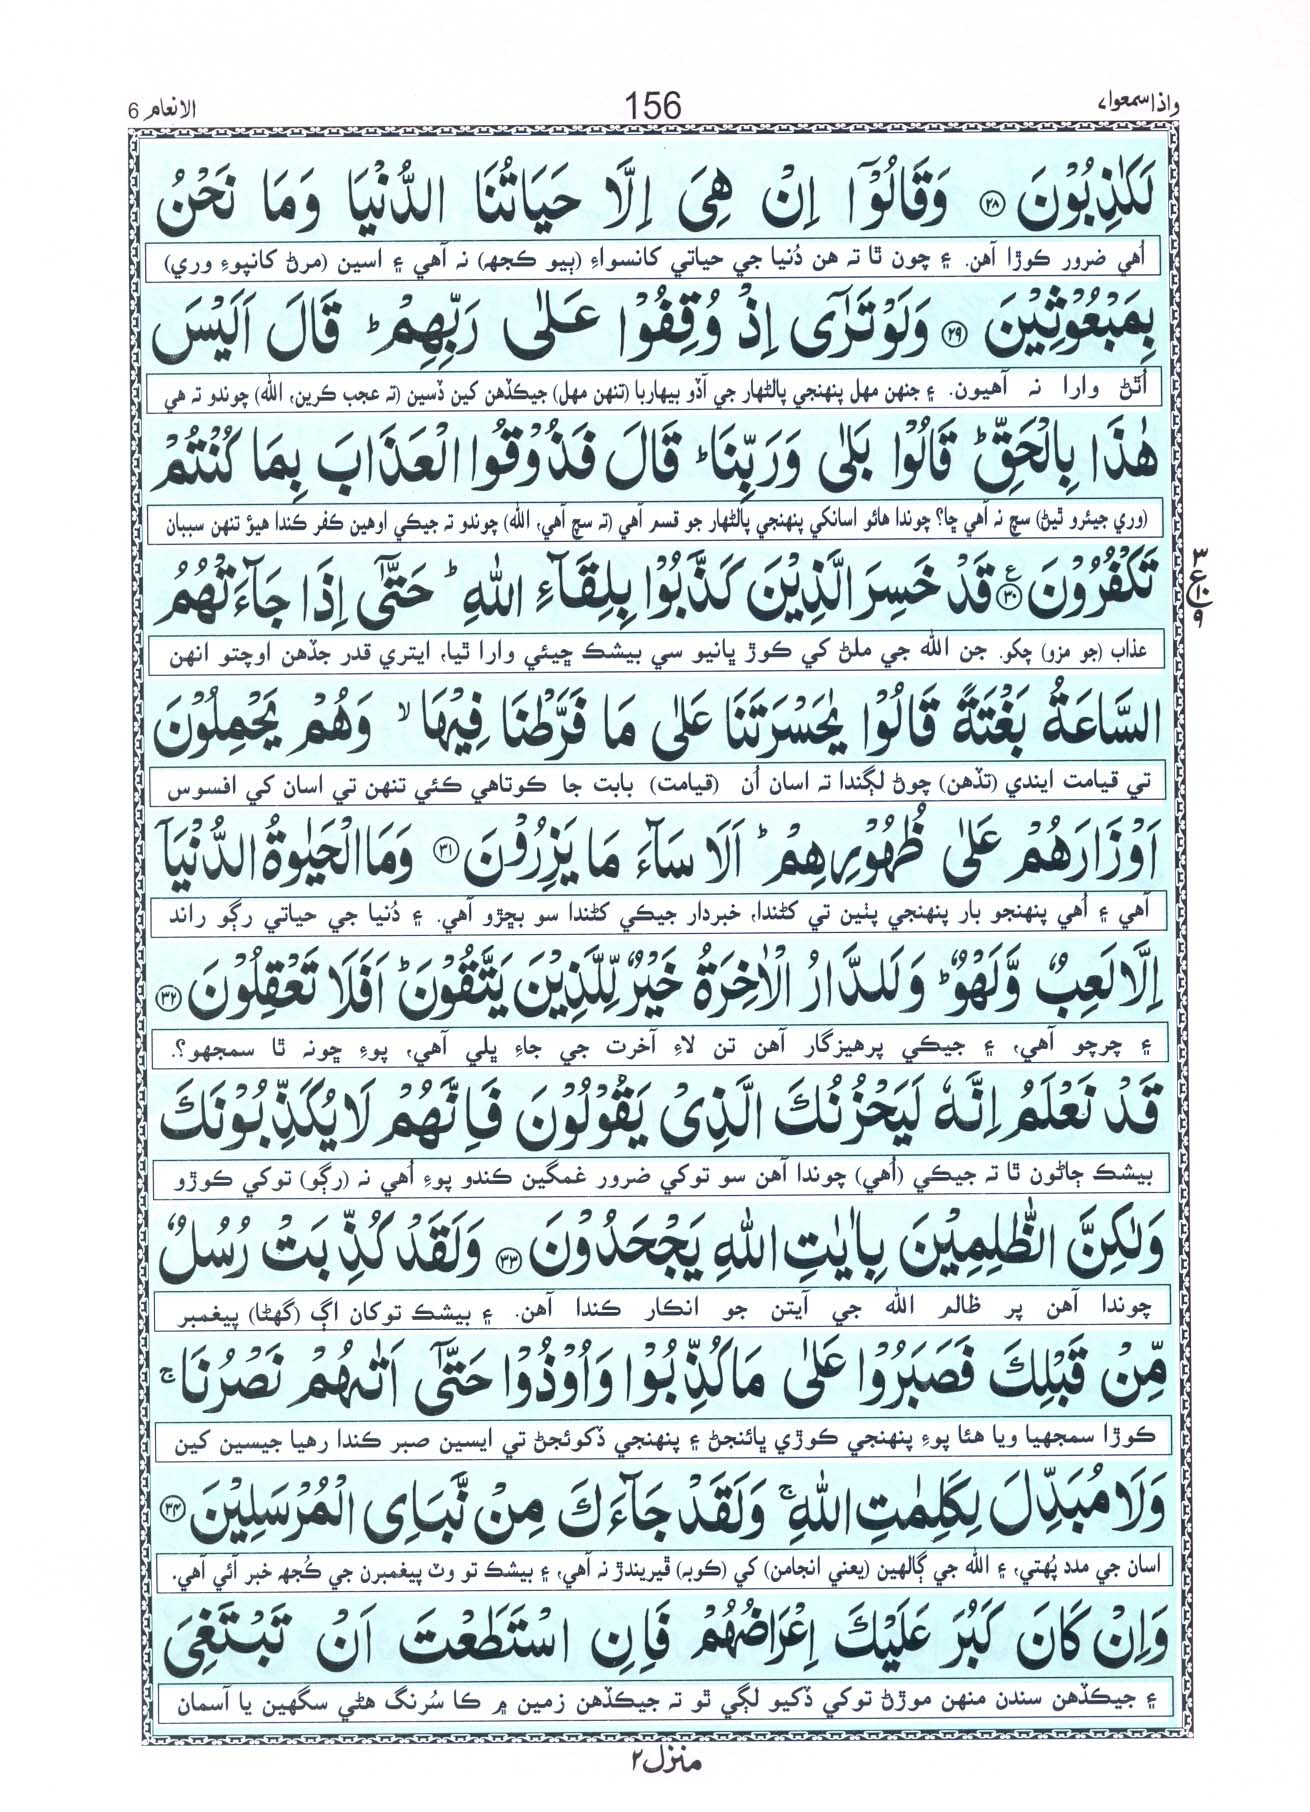 واذاسمعوا۷
156
الانعام 6
لَكٰذِبُوْنَ ۝۲۸ وَقَالُوْۤا اِنْ هِىَ اِلَّا حَيَاتُنَا الدُّنْيَا وَمَا نَحْنُ
اُهي ضرور ڪوڙا آهن. ۽ چون ٿا ته هن دُنيا جي حياتي کانسواءِ (ٻيو ڪجهه) نه آهي ۽ اسين (مرڻ کانپوءِ وري)
بِمَبْعُوْثِيْنَ ۝۲۹ وَلَوْ تَرٰۤى اِذْ وُقِفُوْا عَلٰى رَبِّهِمْ ؕ قَالَ اَلَيْسَ
اُٿڻ وارا نه آهيون. ۽ جنهن مهل پنهنجي پالڻهار جي آڏو بيهاربا (تنهن مهل) جيڪڏهن کين ڏسين (ته عجب ڪرين، الله) چوندو ته هي
هٰذَا بِالْحَقِّ ؕ قَالُوْا بَلٰى وَرَبِّنَا ؕ قَالَ فَذُوْقُوا الْعَذَابَ بِمَا كُنْتُمْ
(وري جيئرو ٿيڻ) سچ نه آهي ڇا؟ چوندا هائو اسانکي پنهنجي پالڻهار جو قسم آهي (ته سچ آهي، الله) چوندو ته جيڪي اوهين ڪفر ڪندا هيؤ تنهن سببان
تَكْفُرُوْنَ ۝۳۰ ع قَدْ خَسِرَ الَّذِيْنَ كَذَّبُوْا بِلِقَآءِ اللّٰهِ ؕ حَتّٰۤى اِذَا جَآءَتْهُمُ
۳ ع ۱۰ ۹
عذاب (جو مزو) چکو. جن الله جي ملڻ کي ڪوڙ ڀانيو سي بيشڪ ڇيئي وارا ٿيا، ايتري قدر جڏهن اوچتو انهن
السَّاعَةُ بَغْتَةً قَالُوْا يٰحَسْرَتَنَا عَلٰى مَا فَرَّطْنَا فِيْهَا ۙ وَهُمْ يَحْمِلُوْنَ
تي قيامت ايندي (تڏهن) چوڻ لڳندا ته اسان اُن (قيامت) بابت جا ڪوتاهي ڪئي تنهن تي اسان کي افسوس
اَوْزَارَهُمْ عَلٰى ظُهُوْرِهِمْ ؕ اَلَا سَآءَ مَا يَزِرُوْنَ ۝۳۱ وَمَا الْحَيٰوةُ الدُّنْيَاۤ
آهي ۽ اُهي پنهنجو بار پنهنجي پٺين تي کڻندا، خبردار جيڪي کڻندا سو بڇڙو آهي. ۽ دُنيا جي حياتي رڳو راند
اِلَّا لَعِبٌ وَّلَهْوٌ ؕ وَلَلدَّارُ الْاٰخِرَةُ خَيْرٌ لِّلَّذِيْنَ يَتَّقُوْنَ ؕ اَفَلَا تَعْقِلُوْنَ ۝۳۲
۽ چرچو آهي، ۽ جيڪي پرهيزگار آهن تن لاءِ آخرت جي جاءِ ڀلي آهي، پوءِ ڇونه ٿا سمجهو؟.
قَدْ نَعْلَمُ اِنَّهٗ لَيَحْزُنُكَ الَّذِىْ يَقُوْلُوْنَ فَاِنَّهُمْ لَا يُكَذِّبُوْنَكَ
بيشڪ ڄاڻون ٿا ته جيڪي (اُهي) چوندا آهن سو توکي ضرور غمگين ڪندو پوءِ اُهي نه (رڳو) توکي ڪوڙو
وَلٰكِنَّ الظّٰلِمِيْنَ بِاٰيٰتِ اللّٰهِ يَجْحَدُوْنَ ۝۳۳ وَلَقَدْ كُذِّبَتْ رُسُلٌ
چوندا آهن پر ظالم الله جي آيتن جو انڪار ڪندا آهن. ۽ بيشڪ توکان اڳ (گهڻا) پيغمبر
مِّنْ قَبْلِكَ فَصَبَرُوْا عَلٰى مَا كُذِّبُوْا وَاُوْذُوْا حَتّٰۤى اَتٰىهُمْ نَصْرُنَا ۚ
ڪوڙا سمجهيا ويا هئا پوءِ پنهنجي ڪوڙي ڀائنجڻ ۽ پنهنجي ڏکوئجڻ تي ايسين صبر ڪندا رهيا جيسين کين
وَلَا مُبَدِّلَ لِكَلِمٰتِ اللّٰهِ ۚ وَلَقَدْ جَآءَكَ مِنْ نَّبَاِى الْمُرْسَلِيْنَ ۝۳۴
اسان جي مدد پُهتي، ۽ الله جي ڳالهين (يعني انجامن) کي (ڪوبه) ڦيريندڙ نه آهي، ۽ بيشڪ تو وٽ پيغمبرن جي ڪُجهه خبر آئي آهي.
وَاِنْ كَانَ كَبُرَ عَلَيْكَ اِعْرَاضُهُمْ فَاِنِ اسْتَطَعْتَ اَنْ تَبْتَغِىَ
۽ جيڪڏهن سندن منهن موڙڻ توکي ڏکيو لڳي ٿو ته جيڪڏهن زمين ۾ ڪا سُرنگ هڻي سگهين يا آسمان
منزل۲